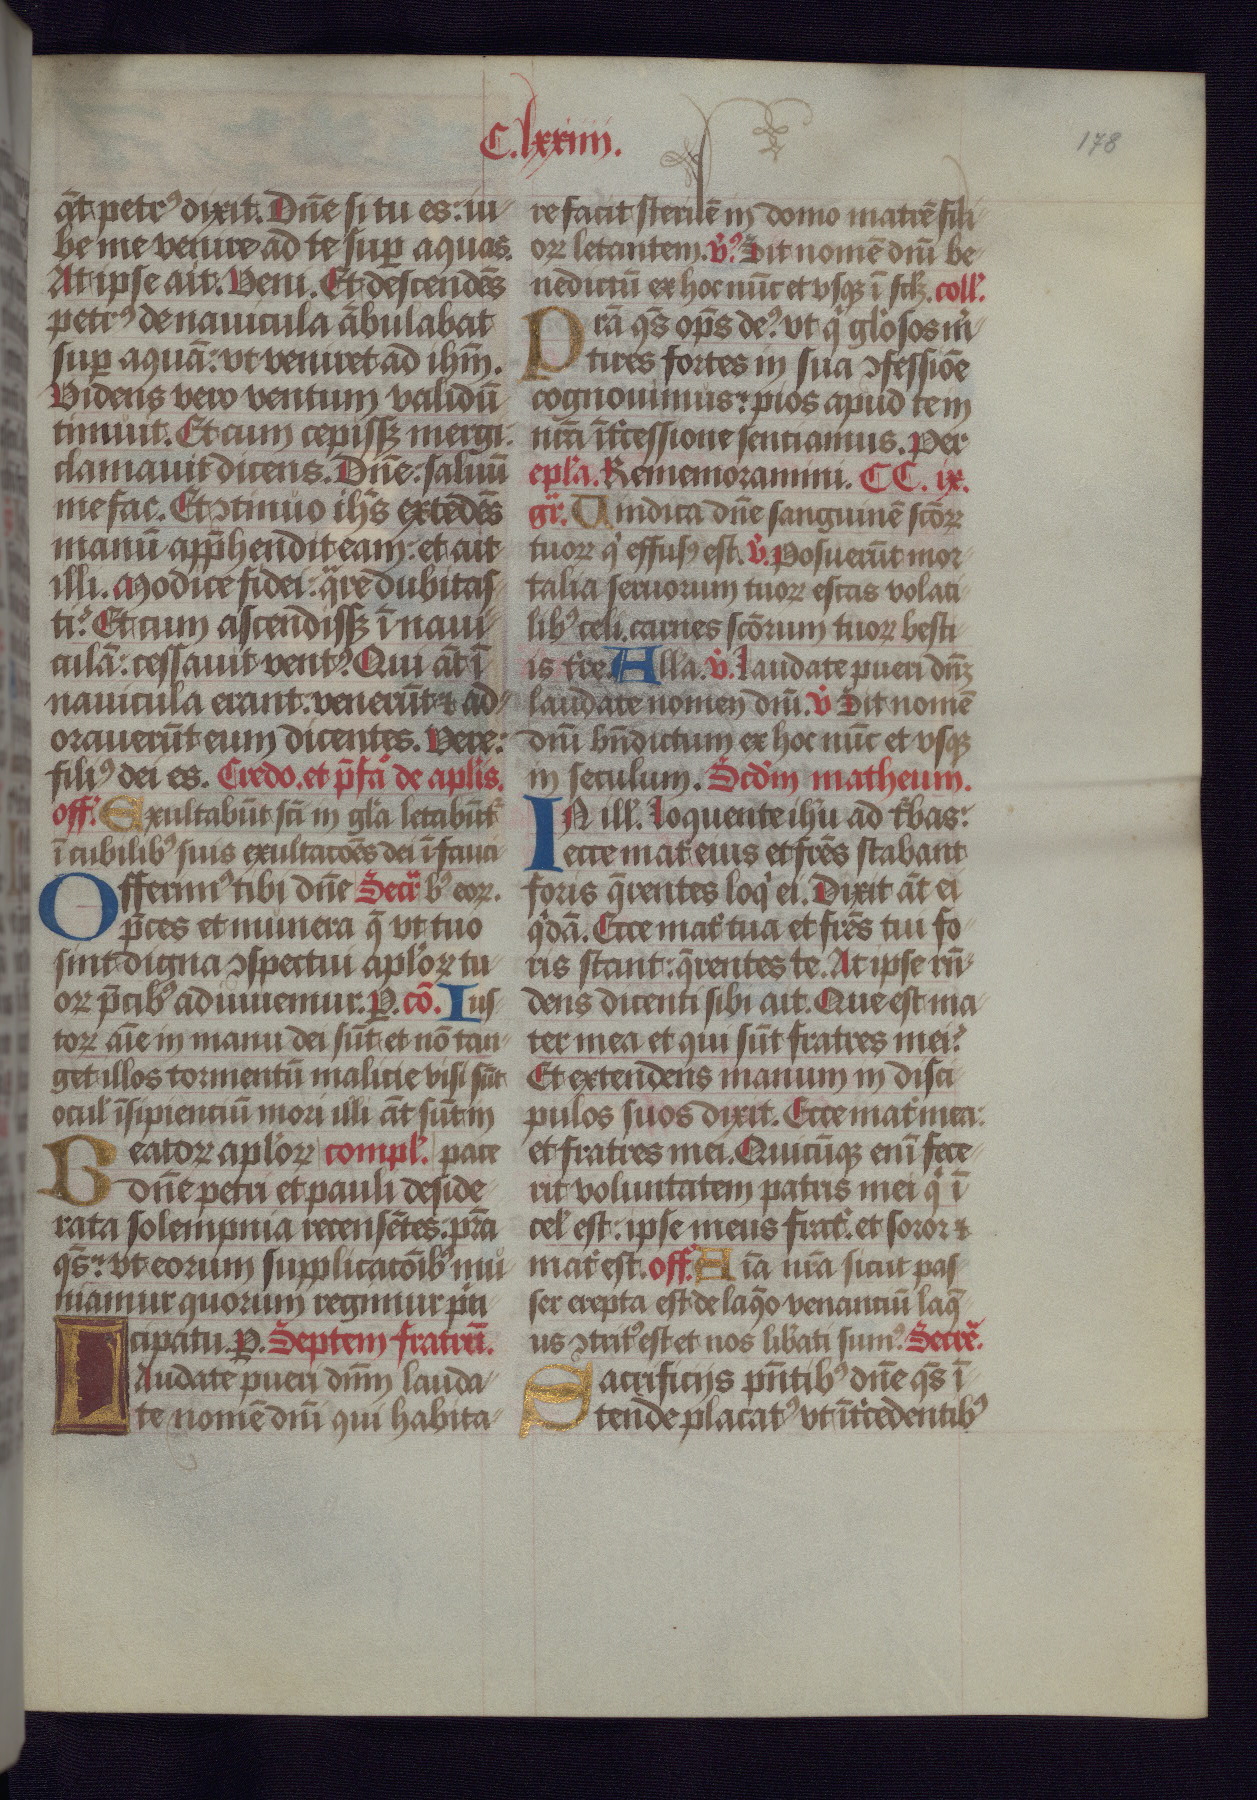 C. lxxiiii.
178
q̄t petrꝰ dixit. Dn̄e si tu es: iu
be me venire ad te suꝑ aquas.
At ipse ait. Veni. Et descendēs
petrꝰ de nauicula ābulabat
suꝑ aquā: vt veniret ad ihm̄.
Videns vero ventum validū
timuit. Et cum cepissꝫ mergi:
clamauit dicens. Dn̄e: saluū
me fac. Et ꝯtinuo ihs̄ extēdēs
manū app̄hendit eam: et ait
illi. Modice fidei: q̄re dubitas
ti? Et cum ascendissꝫ ī naui
culā: cessauit ventꝰ. Qui āt ī
nauicula erant: venerūt ⁊ ad
orauerūt eum dicentes. Vere:
filiꝰ dei es. Credo. et p̄fa de apl̄is.
off. Exultabūt sci in gl̄a letabūt̉
ī cubilibꝰ suis exultacōēs dei ī fauci
Offerimꝰ tibi dn̄e Secr̄ bꝰ eoꝝ.
p̄ces et munera q̄ vt tuo
sint digna ꝯspectui apl̄oꝝ tu
oꝝ p̄cibꝰ adiuuemur. P. cō. Ius
toꝝ aīe in manu dei sūt et nō tan
get illos tormentū malicie visi sūt
ocul̉ īsipientiū mori illi āt sūt in
Beatoꝝ apl̄oꝝ compl̉. pace
dn̄e petri et pauli deside
rata solempnia recensētes: p̄ta
qs̄: vt eorum supplicatōībꝰ mu
niamur quorum regimur p̄n
cipatu. P. Septem fratrū.
Laudate pueri dn̄m lauda
te nomē dn̄i qui habita
re facit sterilē in domo matrē fili
oꝝ letantem. v̉. Sit nomē dn̄i be
nedictū ex hoc nūc et vsqꝫ ī sclꝫ. coll̉.
Prā qs̄ op̄s deꝰ: vt q̉ gl̉osos m̉
tires fortes in sua ꝯfessiōe
cognouimus: pios apud te in
nr̄a īt̉cessione sentiamus. Per
epl̄a. Rememoramini. CC. ix.
gr̄. Uindica dn̄e sanguinē sctōꝝ
tuoꝝ q̉ effusꝰ est. v̉. Posuerūt mor
talia seruorum tuoꝝ escas volati
libꝰ celi. carnes sctōrum tuoꝝ besti
is t̉re. All̉a. v̉. Laudate pueri dn̄ꝫ
laudate nomen dn̄i. v̉ Sit nomē
dn̄i bn̄dictum ex hoc nūc et vsqꝫ
in seculum. Scd̄m matheum.
IN ill̉. Loquente ihū ad t̉bas:
ecce mat̉ eius et fr̄es stabant
foris q̄rentes loq̉ ei. Dixit āt ei
q̉dā. Ecce mat̉ tua et fr̄es tui fo
ris stant: q̄rentes te. At ipse rn̄
dens dicenti sibi ait. Que est ma
ter mea et qui sūt fratres mei?
Et extendens manum in disci
pulos suos dixit. Ecce mat̉ mea:
et fratres mei. Quicūqꝫ enī fece
rit voluntatem patris mei q̉ ī
cel̉ est: ipse meus frat̉. et soror ⁊
mat̉ est. off. Aīa nr̄a sicut pas
ser erepta est de laq̉o venantiū laq̄
us ꝯtrit̉ꝰ est et nos lib̉ati sumꝰ. Secrē.
Sacrificiis pn̄tibꝰ dn̄e qs̄ ī
tende placatꝰ: vt īt̉cedentibꝰ